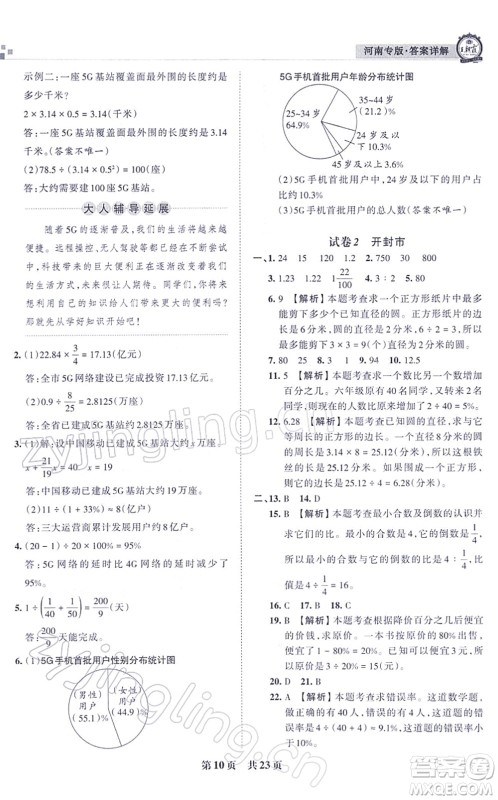 河南专版·答案详解
王朝霞
示例二:一座5G基站覆盖面最外围的长度约是
多少千米?
2×3.14×0.5=3.14(千米)
答:一座5G基站覆盖面最外围的长度约是3.14
千米。(答案不唯一)
(2)78.5÷(3.14×0.5²)=100(座)
答:大约需要建100座5G基站。
大人辅导延展
随着5G的发展,我们的生活将越来越
便捷。远程投控、无人驾驶等我们也已不断尝试,
科技带来的巨大便利正在改变着我们
的生活方式,未来还将更多地造福人类。你将
来想用自己的知识给人们带来哪些便利呢?
那就先从学好知识开始吧!
2.(1)22.84×3/4=17.13(亿元)
答:全市5G网络建设总投资17.13亿元。
(2)0.9÷8/25=2.8125(万座)
答:全省已建成5G基站2.8125万座。
3.(1)解:设中国移动已建成5G基站大约x万座。
x+21/19x=40 x=19
答:中国移动已建成5G基站大约19万座。
(2)11÷(1+33%)≈8(亿户)
答:三大运营商累计发展用户约8亿户。
4.(20-1)÷20=0.95=95%
答:5G网络的延时比4G网络的延时减少了
95%。
5.1÷(1/40+1/50)=200/9(天)
答:200/9天能完成。
6.(1)5G手机首批用户性别分布统计图
(男性)
用户
(55.1%)
(女性)
用户
(44.9%)
5G手机首批用户年龄分布统计图
25~34岁
64.9%
24岁及以下
(21.2%)
35~44岁
(10.3%)
45岁及以上3.6%
(2)5G手机首批用户中,24岁及以下的用户大
约占10.3%
(3)5G手机首批用户的总人数(答案不唯一)
试卷2 开封市
一、1.24 15 120 1.2 2.50 5
3.75 4.1.23 1.22 1 22/100
6.9 【解析】本题考查求一个正方形纸片中最多
能剪下多少个已知直径的圆。正方形纸片的边
长是6分米,圆的直径是2分米,6÷2=3(个),
3×3=9(个),所以最多能剪下9个这样的圆。
7.80 25 8.1 9.4 10.12.5
11.5 【解析】本题考查求一个数比另一个数增加
百分之几。六年级原有40名学生,又转来2名
学生,求六年级学生人数增加了百分之几,列式
为2÷40=5%。
12.6.28 【解析】本题考查已知圆的直径求圆的
周长。在长10分米、宽8分米的长方形中画一
个最大的圆,圆的直径是8分米,圆的周长是
3.14×8=25.12(分米)。把该圆平均分成4个
扇形,每个扇形的曲线长是圆周长的1/4,即每个
扇形的曲线长是25.12÷4=6.28(分米)。
二、13.B 14.D
15.B 【解析】本题考查最小合数及倒数的认识并
求它们的比。最小的合数是4,它的倒数是1/4,
所以最小的合数与它的倒数的比是4∶1/4,化
简后是16∶1。
16.C 17.B 18.C
19.B 【解析】本题考查降价前后百分之几及折扣
的意义。如果把原价看作单位“1”,降价20%是
现价的1-20%=80%,80%=八折。
20.D 21.B
22.A 【解析】本题考查求错误率。这道数学题,
做对了46人,做错了4人,这道题的错误率是
4÷(46+4)×100%=8%。
第10页 共23页
zyjingling.com
zyjingling.com
答案圈
MXQE.COM